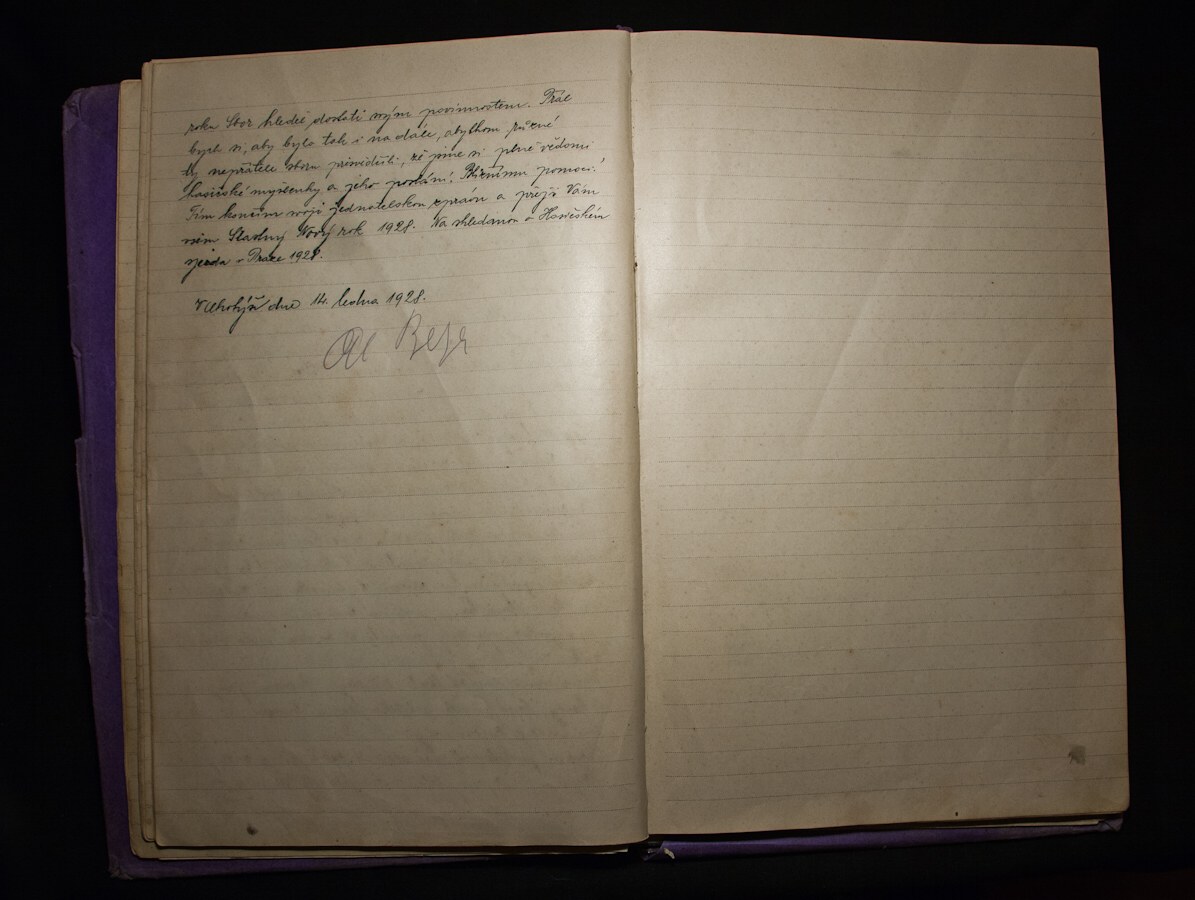 roku Sbor hleděl dostáti svým povinnostem. Přál
bych si, aby bylo tak i na dále, abychom různé
ty nepřátele sboru přesvědčili, že jsme si plně vědomi
hasičské myšlenky a jeho poslání: Bližnímu pomoci!
Tím končím svoji jednatelskou zprávu a přeji Vám
všem Šťastný Nový rok 1928. Na shledanou o Hasičském
sjezdu v Praze 1928.
dne 14. ledna 1928.